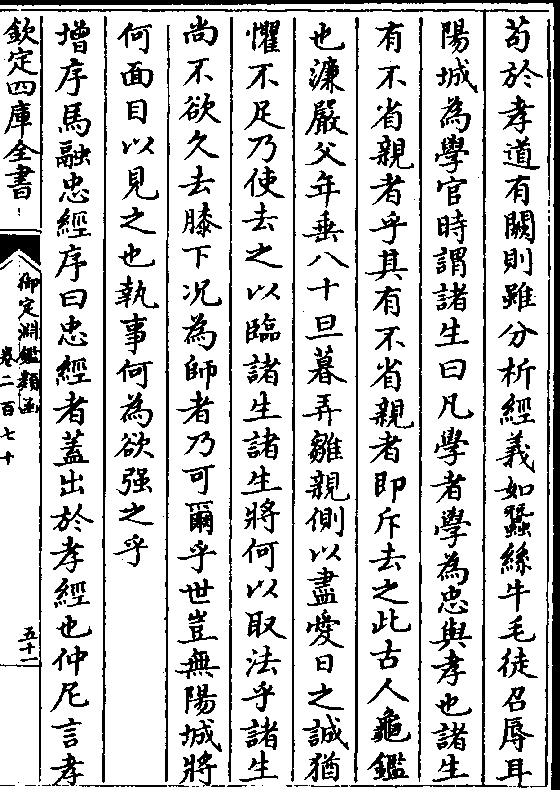 苟於孝道有闕則雖分析經義如蠶絲牛毛徒召辱耳
陽城為學官時謂諸生曰凡學者學為忠與孝也諸生
有不省親者乎其有不省親者即斥去之此古人龜鑑
也濂嚴父年垂八十旦暮弄雛親側以盡愛日之誠猶
懼不足乃使去之以臨諸生諸生將何以取法乎諸生
尚不欲久去膝下况為師者乃可爾乎世豈無陽城將
何面目以見之也執事何為欲强之乎
增序馬融忠經序曰忠經者蓋出於孝經也仲尼言孝
欽定四庫全書
御定淵鑑類函
卷二百七十
五十二